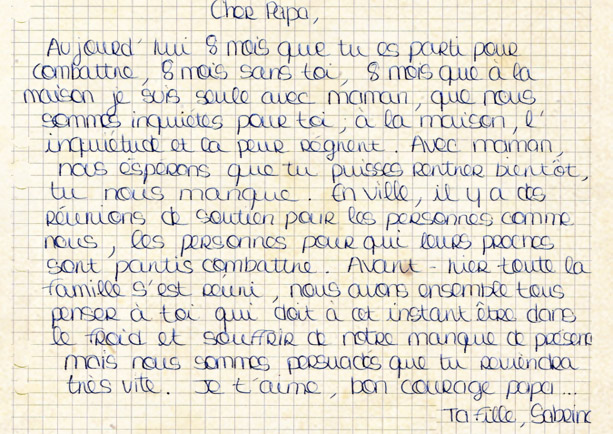 Cher Papa,
Aujourd'hui 8 mois que tu es parti pour
combattre, 8 mois sans toi, 8 mois que à la
maison je suis seule avec maman, que nous
sommes inquiètes pour toi ; à la maison, l'
inquiétude et la peur règnent. Avec maman,
nous espérons que tu puisses rentrer bientôt,
tu nous manque. En ville, il y a des
réunions de soutien pour les personnes comme
nous, les personnes pour qui leurs proches
sont partis combattre. Avant-hier toute la
famille s'est réuni, nous avons ensemble tous
penser à toi qui doit à cet instant être dans
le froid et souffrir de notre manque de présence
mais nous sommes persuadés que tu reviendra
très vite. Je t'aime, bon courage papa...
Ta fille, Sabrine